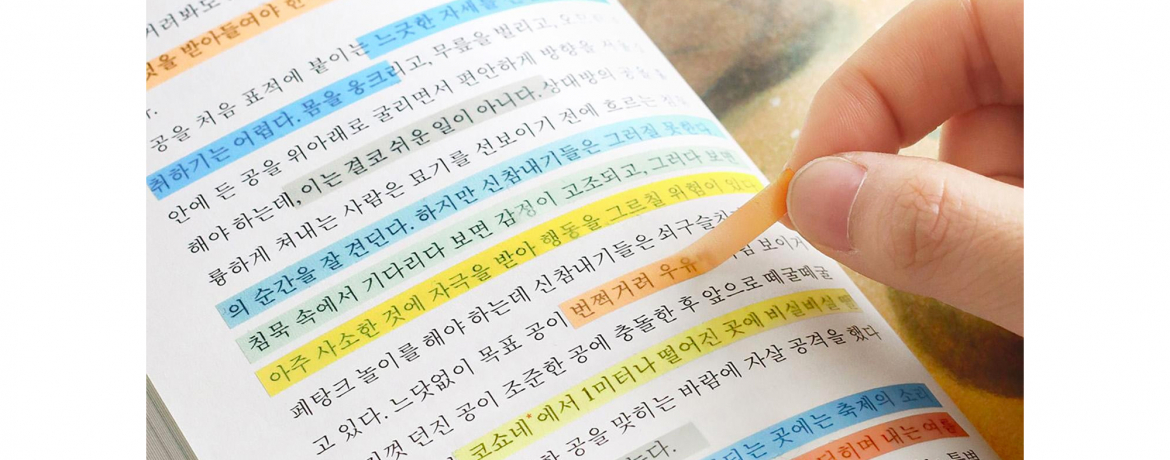 받아들여야 한
표적에 붙이는 느긋한 자세를
공을 처음
취하기는 어렵다. 몸을 웅크리고, 무릎을 벌리고,
안에 든 공을 위아래로 굴리면서 편안하게 방향을
해야 하는데, 이는 결코 쉬운 일이 아니다. 상대방의 공을
륭하게 쳐내는 사람은 묘기를 선보이기 전에 흐르는
의 순간을 잘 견딘다. 하지만 신참내기들은 그러질 못한다.
침묵 속에서 기다리다 보면 감정이 고조되고, 그러다 보면
아주 사소한 것에 자극을 받아 행동을 그르칠 위험이 있다.
페탕크 놀이를 해야 하는데 신참내기들은 쇠구슬
고 있다. 느닷없이 목표 공이 번쩍거려 우유 보이거
껏 던진 공이 조준한 공에 충돌한 후 앞으로 떼굴떼굴
코쇼네*에서 1미터나 떨어진 곳에 비실비실
한 공을 맞히는 바람에 자살 공격을 했다
되는 곳에는 축제의 소리
히며 내는